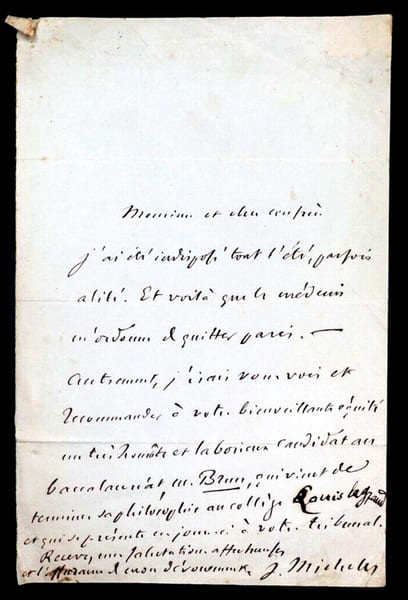 Monsieur et cher confrère
j'ai été indisposé tout l'été, parfois
alité. Et voilà que le médecin
m'ordonne de quitter paris. —
autrement, j'irais vous voir et
recommander à votre bienveillante équité
un très honnête et laborieux candidat au
baccalauréat m. Brun, qui vient de
terminer sa philosophie au collège Louis legrand
et qui se présente en jour-ci à votre tribunal.
Recevez, mes salutations affectueuses
et l'assurance de mon dévouement J. Michelet